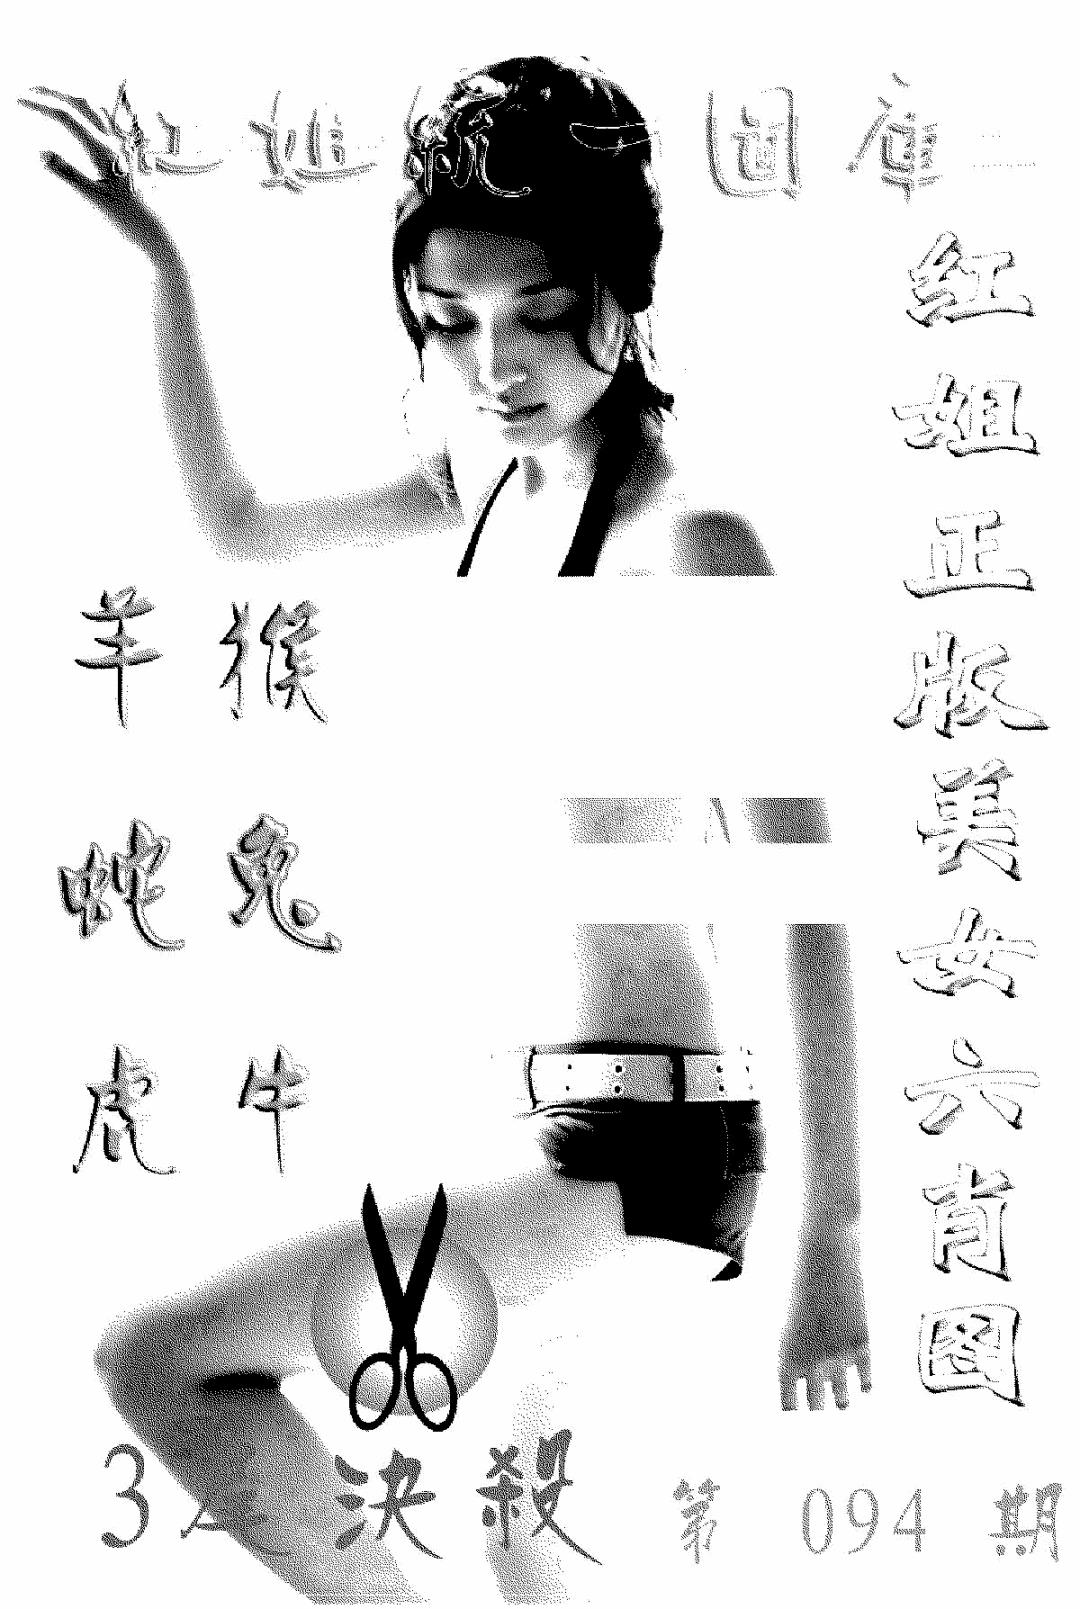 紅姐新一圖庫
紅姐正版美女六肖图
羊 猴
蛇 兔
虎 牛
決殺
第 094 期